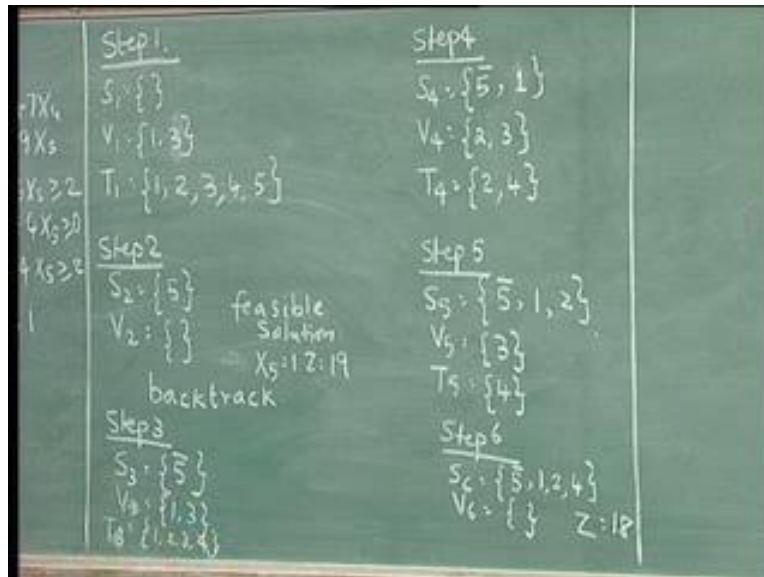 7X4
9X3
X5≥2
4X5≥0
4X5≥2
1
Step1.
S1={}
V1={1,3}
T1={1,2,3,4,5}
Step2
S2={5}
V2={}
feasible
Solution
X5=1 Z=19
backtrack
Step3
S3={5̄}
V3={1,3}
T3={1,2,3,4}
Step4
S4={5̄,1}
V4={2,3}
T4={2,4}
Step5
S5={5̄,1,2}
V5={3}
T5={4}
Step6
S6={5̄,1,2,4}
V6={} Z=18